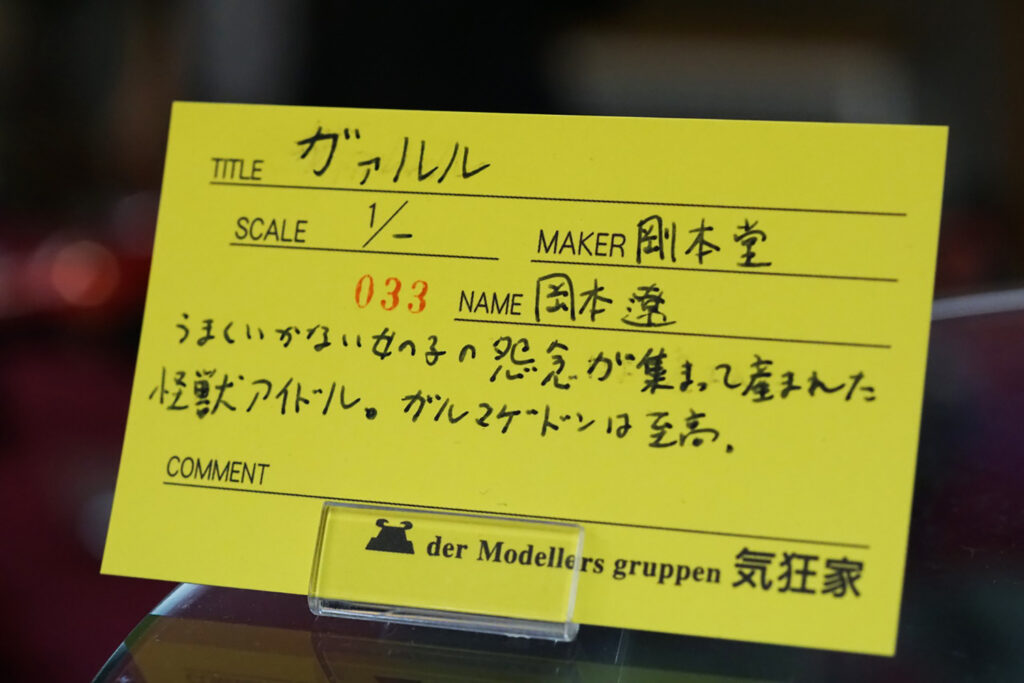 TITLE ガァルル
SCALE 1/- MAKER 剛本堂
033 NAME 岡本遼
うまくいかない女の子の怨念が集まって産まれた
怪獣アイドル。ガルマゲドンは至高.
COMMENT
der Modellers gruppen 気狂家